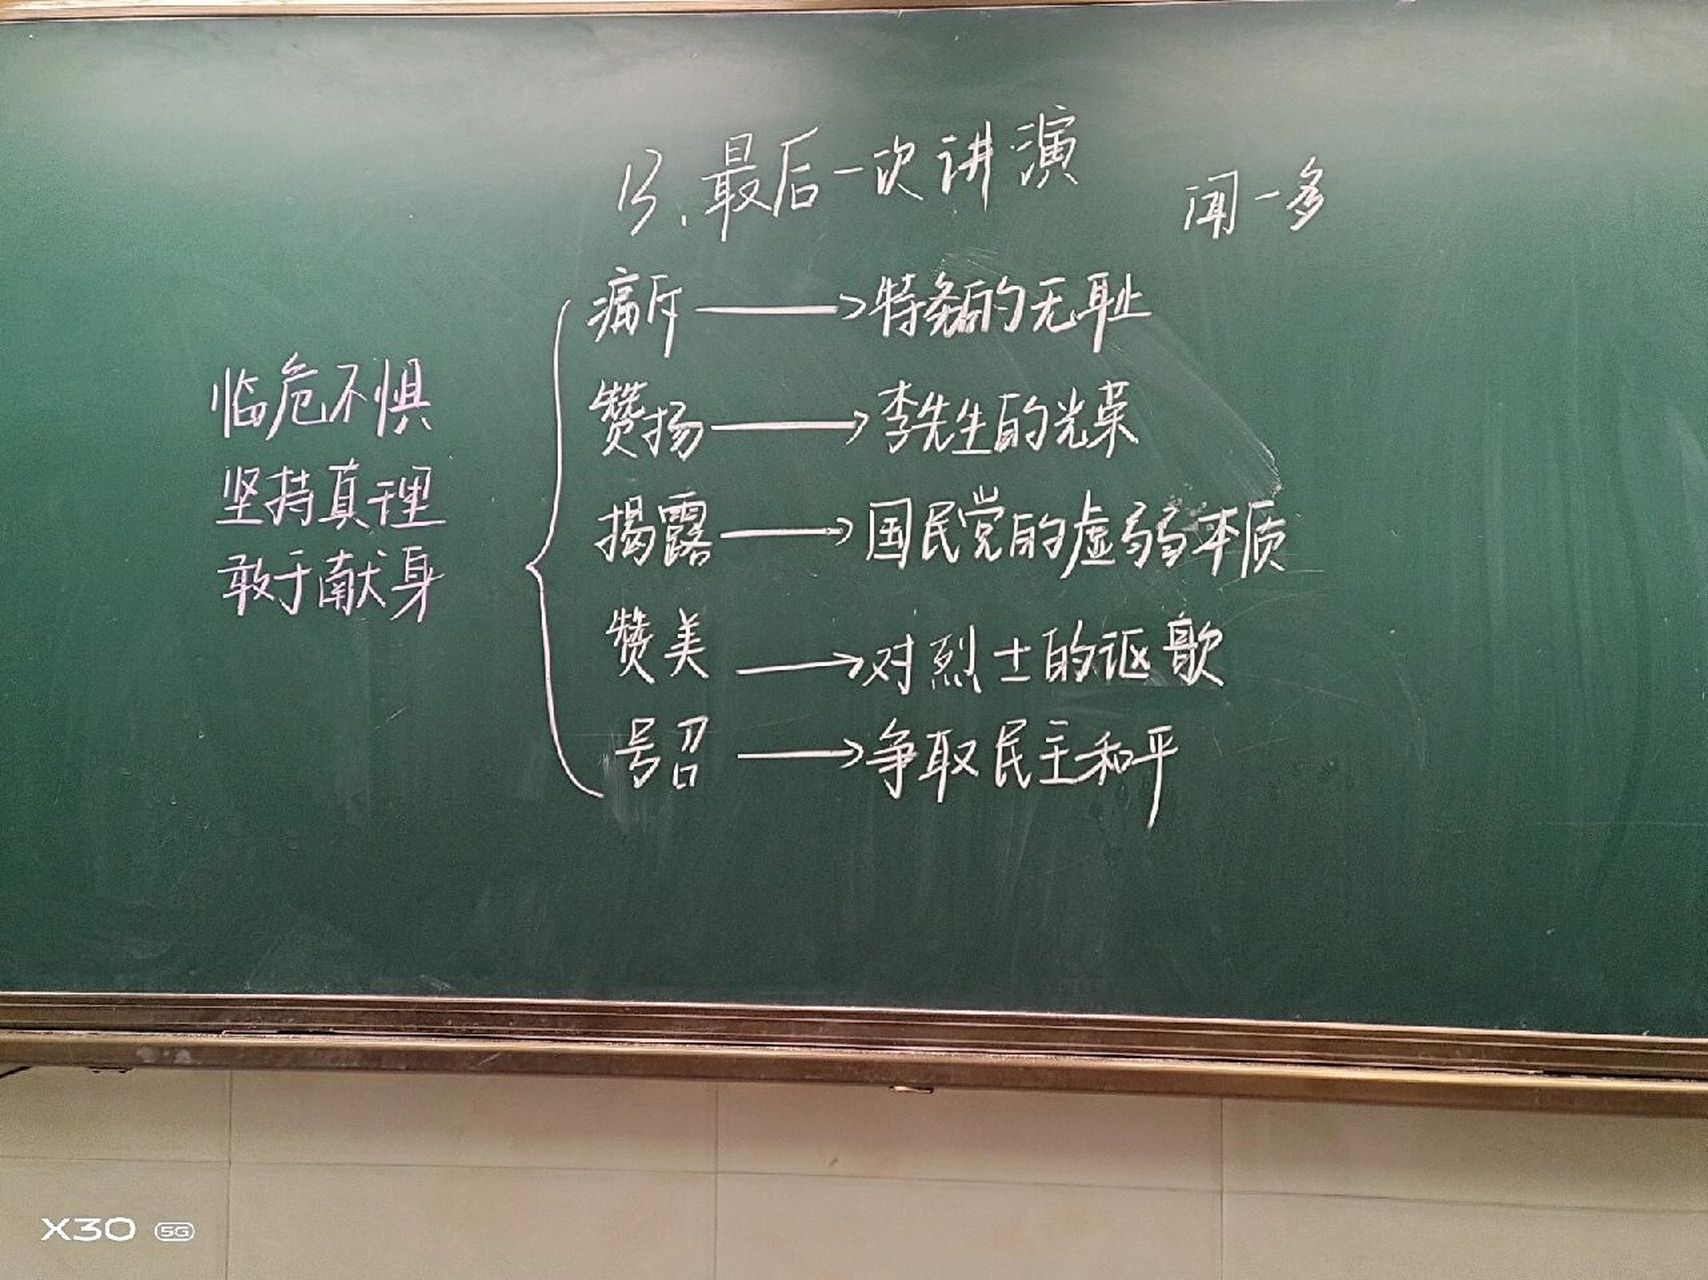 13、最后一次讲演 闻一多
临危不惧
坚持真理
敢于献身
痛斥→特务的无耻
赞扬→李先生的光荣
揭露→国民党的虚弱本质
赞美→对烈士的讴歌
号召→争取民主和平
X30 5G